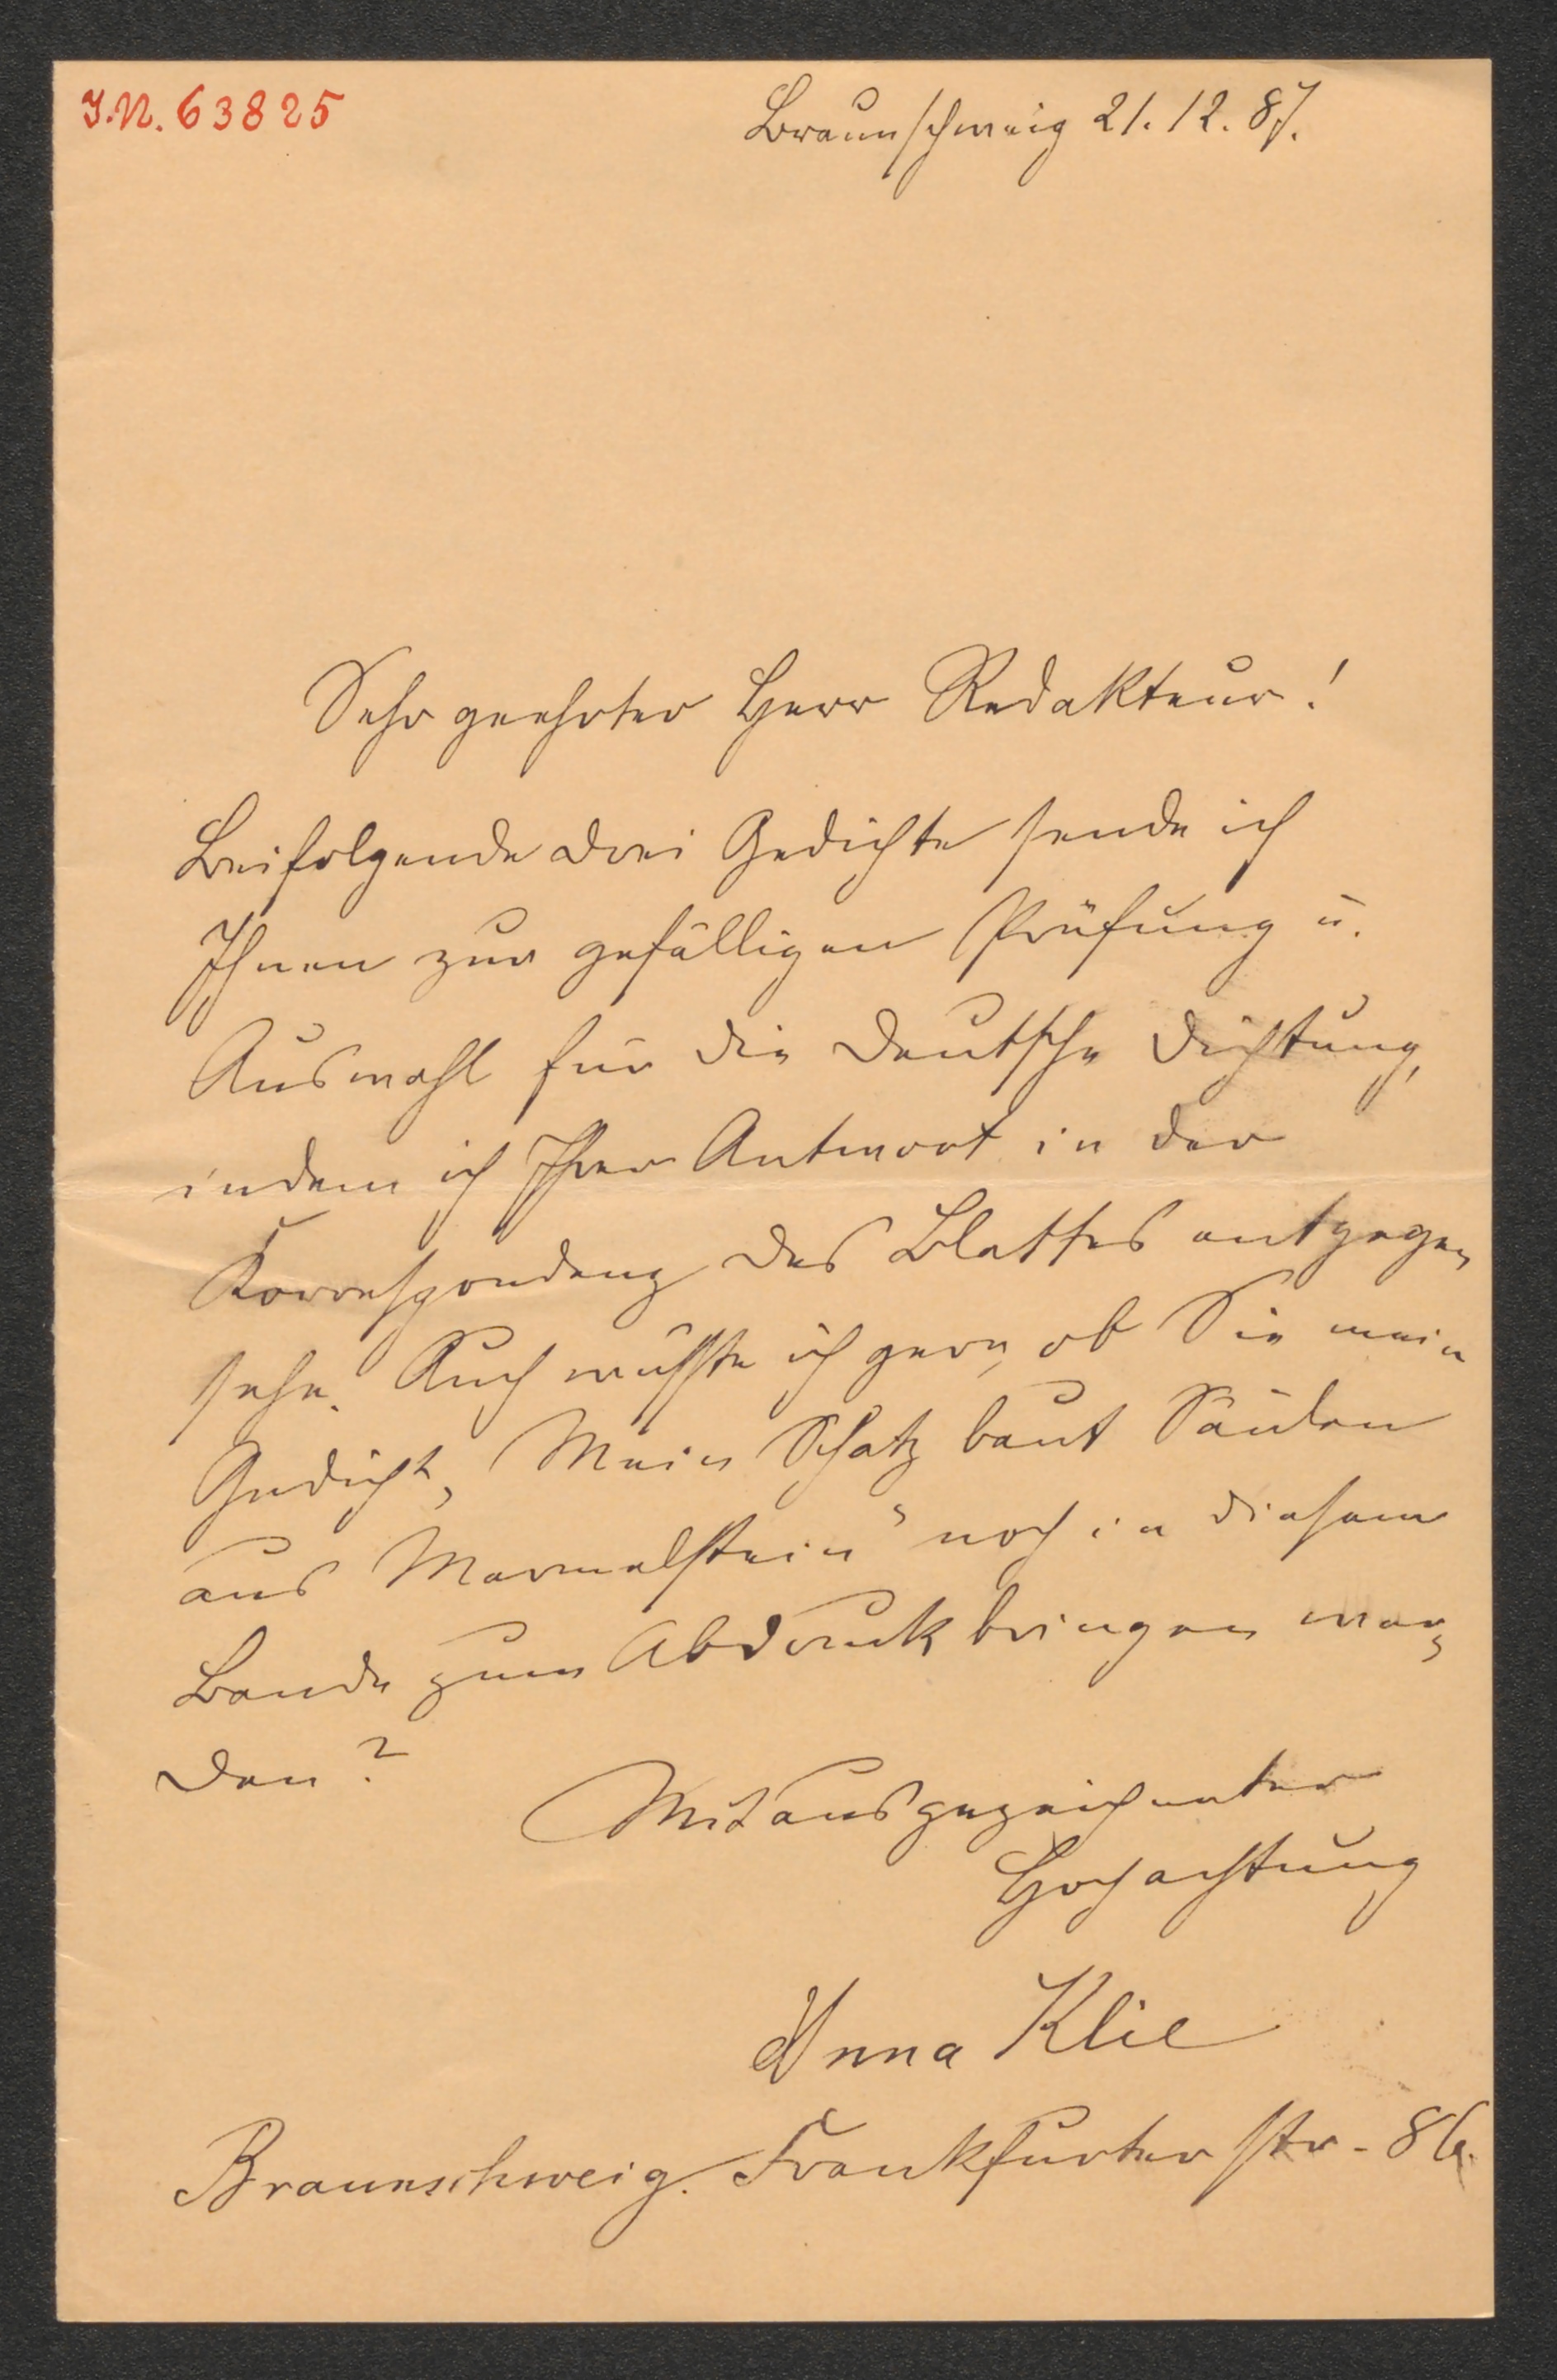 I.N. 63825
Braunschweig 21. 12. 87.
Sehr geehrter Herr Redakteur!
Beifolgende drei Gedichte sende ich
Ihnen zur gefälligen Prüfung u.
Auswahl für die Deutsche Dichtung,
indem ich Ihrer Antwort in der
Korrespondenz des Blattes entgegen
sehe. Auch wüßte ich gern, ob Sie mein
Gedicht „Mein Schatz baut Säulen
aus Marmelstein“ noch in diesem
Bande zum Abdruck bringen wer-
den?
Mit ausgezeichneter
Hochachtung
Anna Klie
Braunschweig. Frankfurter Str.